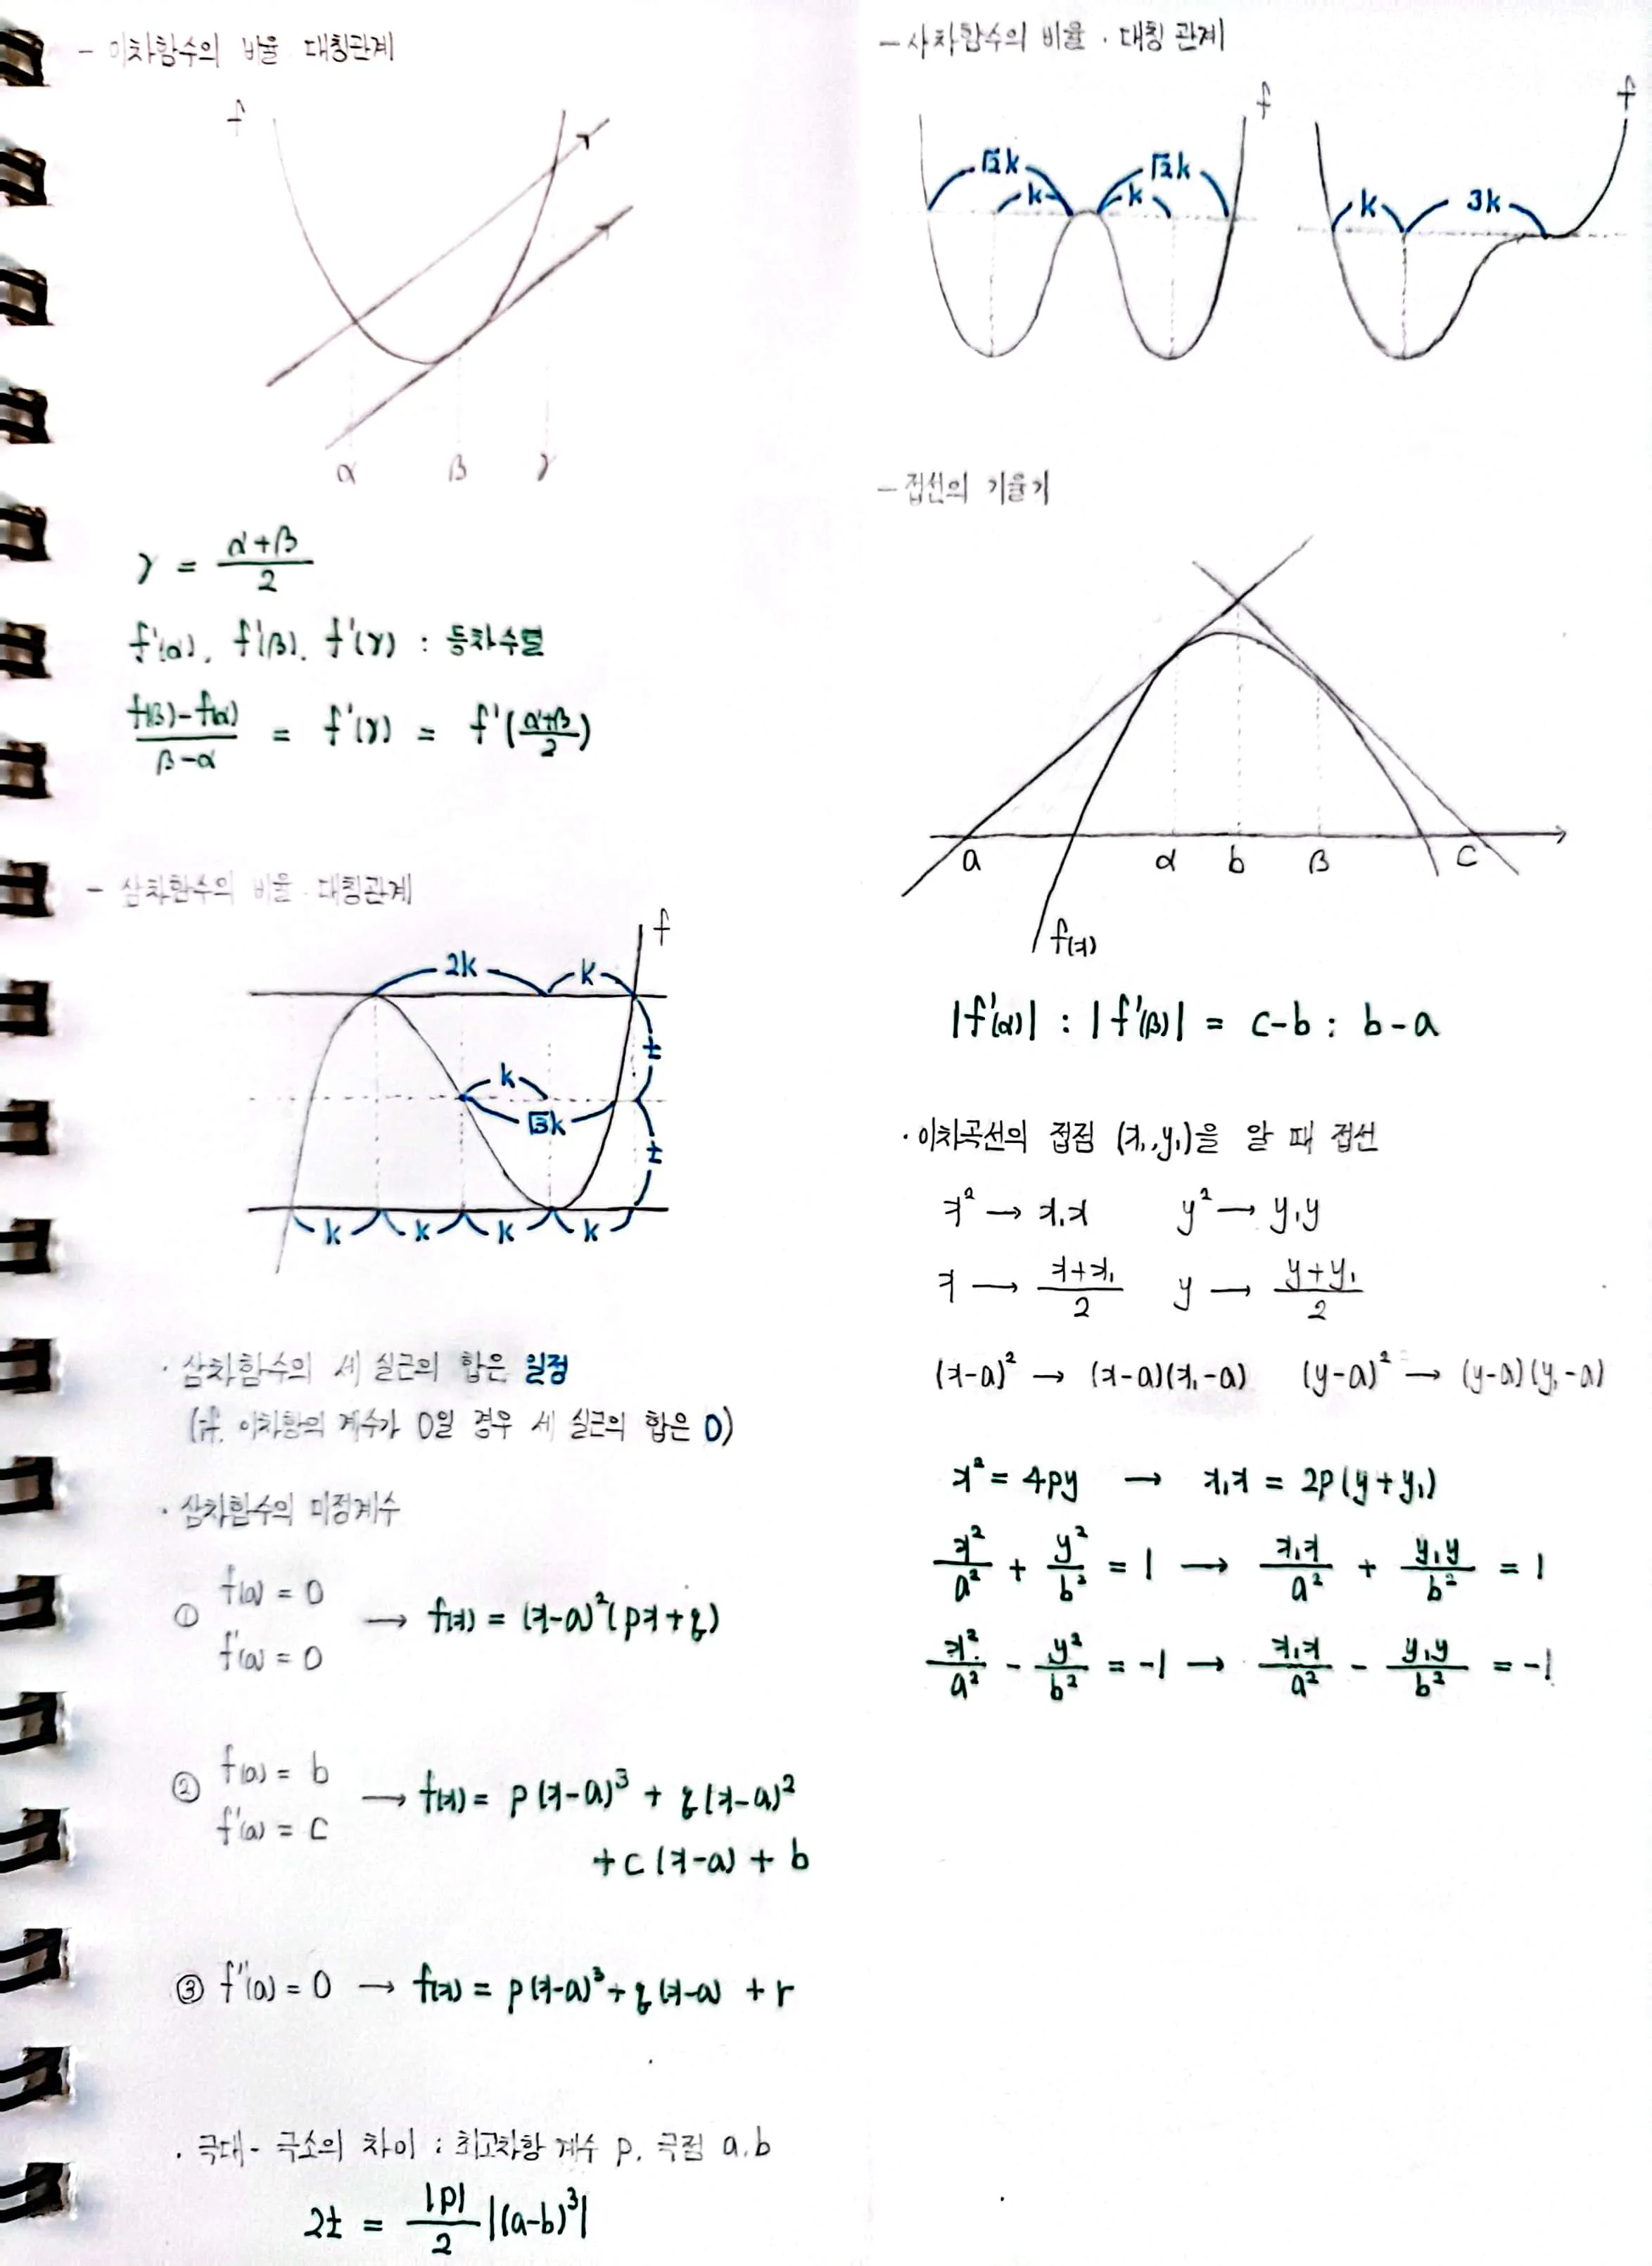 - 이차함수의 비율·대칭관계
f
α β γ
γ = (α+β)/2
f'(α), f'(β), f'(γ) : 등차수열
(f(β)-f(α))/(β-α) = f'(γ) = f'((α+β)/2)
- 삼차함수의 비율·대칭관계
f
2k k
t
k
√3k
t
k k k k
· 삼차함수의 세 실근의 합은 일정
이차항의 계수가 0일 경우 세 실근의 합은 0)
· 삼차함수의 미정계수
① f(a) = 0
f'(a) = 0 → f(x) = (x-a)²(px+q)
② f(a) = b
f'(a) = c → f(x) = p(x-a)³ + q(x-a)²
+c(x-a) + b
③ f''(a) = 0 → f(x) = p(x-a)³+q(x-a) + r
· 극대-극소의 차이 : 최고차항 계수 p, 극점 a, b
2t = |p|/2 |(a-b)³|
- 사차함수의 비율·대칭관계
f f
√2k √2k
k k k 3k
- 접선의 기울기
a α b β c
f(x)
|f'(α)| : |f'(β)| = c-b : b-a
· 이차곡선의 접점 (x₁, y₁)을 알 때 접선
x² → x₁x y² → y₁y
x → (x+x₁)/2 y → (y+y₁)/2
(x-a)² → (x-a)(x₁-a) (y-a)² → (y-a)(y₁-a)
x² = 4py → x₁x = 2p(y+y₁)
x²/a² + y²/b² = 1 → x₁x/a² + y₁y/b² = 1
x²/a² - y²/b² = -1 → x₁x/a² - y₁y/b² = -1